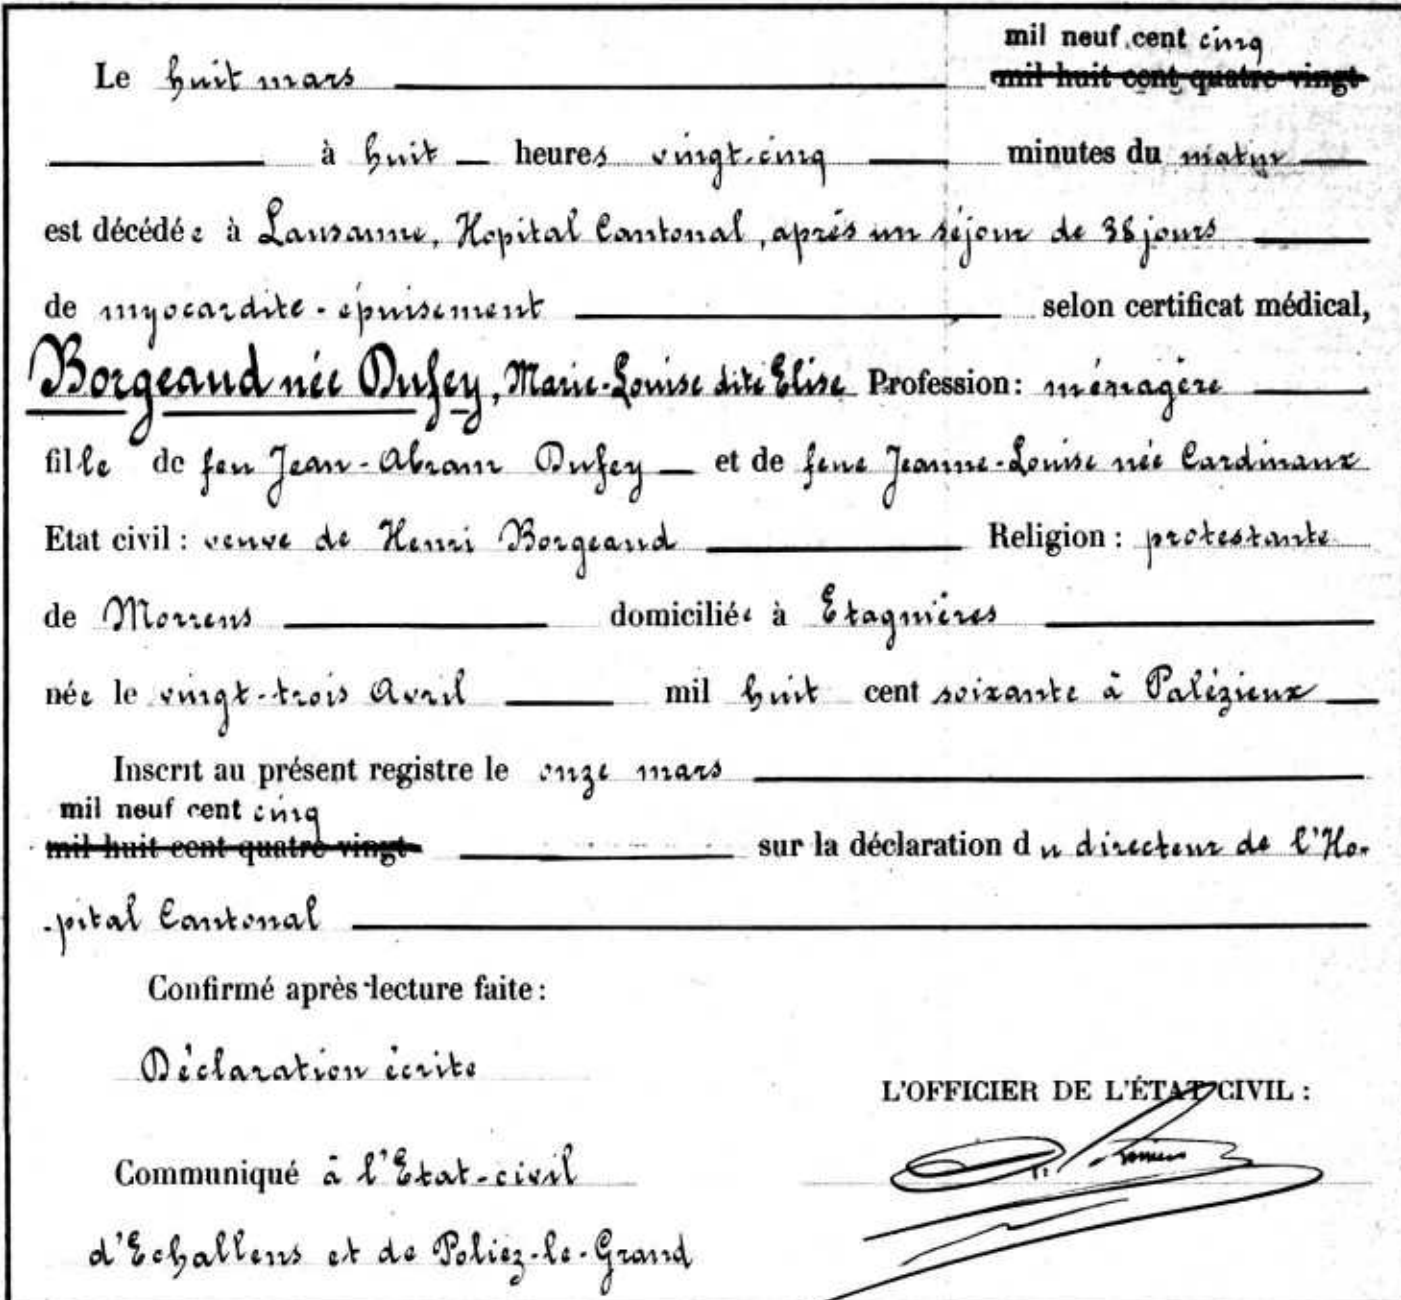 mil neuf cent cinq
Le huit mars mil huit cent quatre vingt
à huit heures vingt-cinq minutes du matin
est décédée à Lausanne, Hopital Cantonal, après un séjour de 38 jours
de myocardite - épuisement selon certificat médical,
Borgeaud née Dufey, Marie-Louise dite Elise Profession: ménagère
fille de feu Jean-Abram Dufey et de feue Jeanne-Louise née Cardinaux
Etat civil : veuve de Henri Borgeaud Religion : protestante
de Morrens domiciliée à Etagnières
née le vingt-trois Avril mil huit cent soixante à Palézieux
Inscrit au présent registre le onze mars
mil neuf cent cinq
mil huit cent quatre vingt sur la déclaration du directeur de l'Ho-
-pital Cantonal
Confirmé après lecture faite :
Déclaration écrite
L'OFFICIER DE L'ÉTAT CIVIL :
Communiqué à l'Etat-civil
d'Echallens et de Poliez-le-Grand